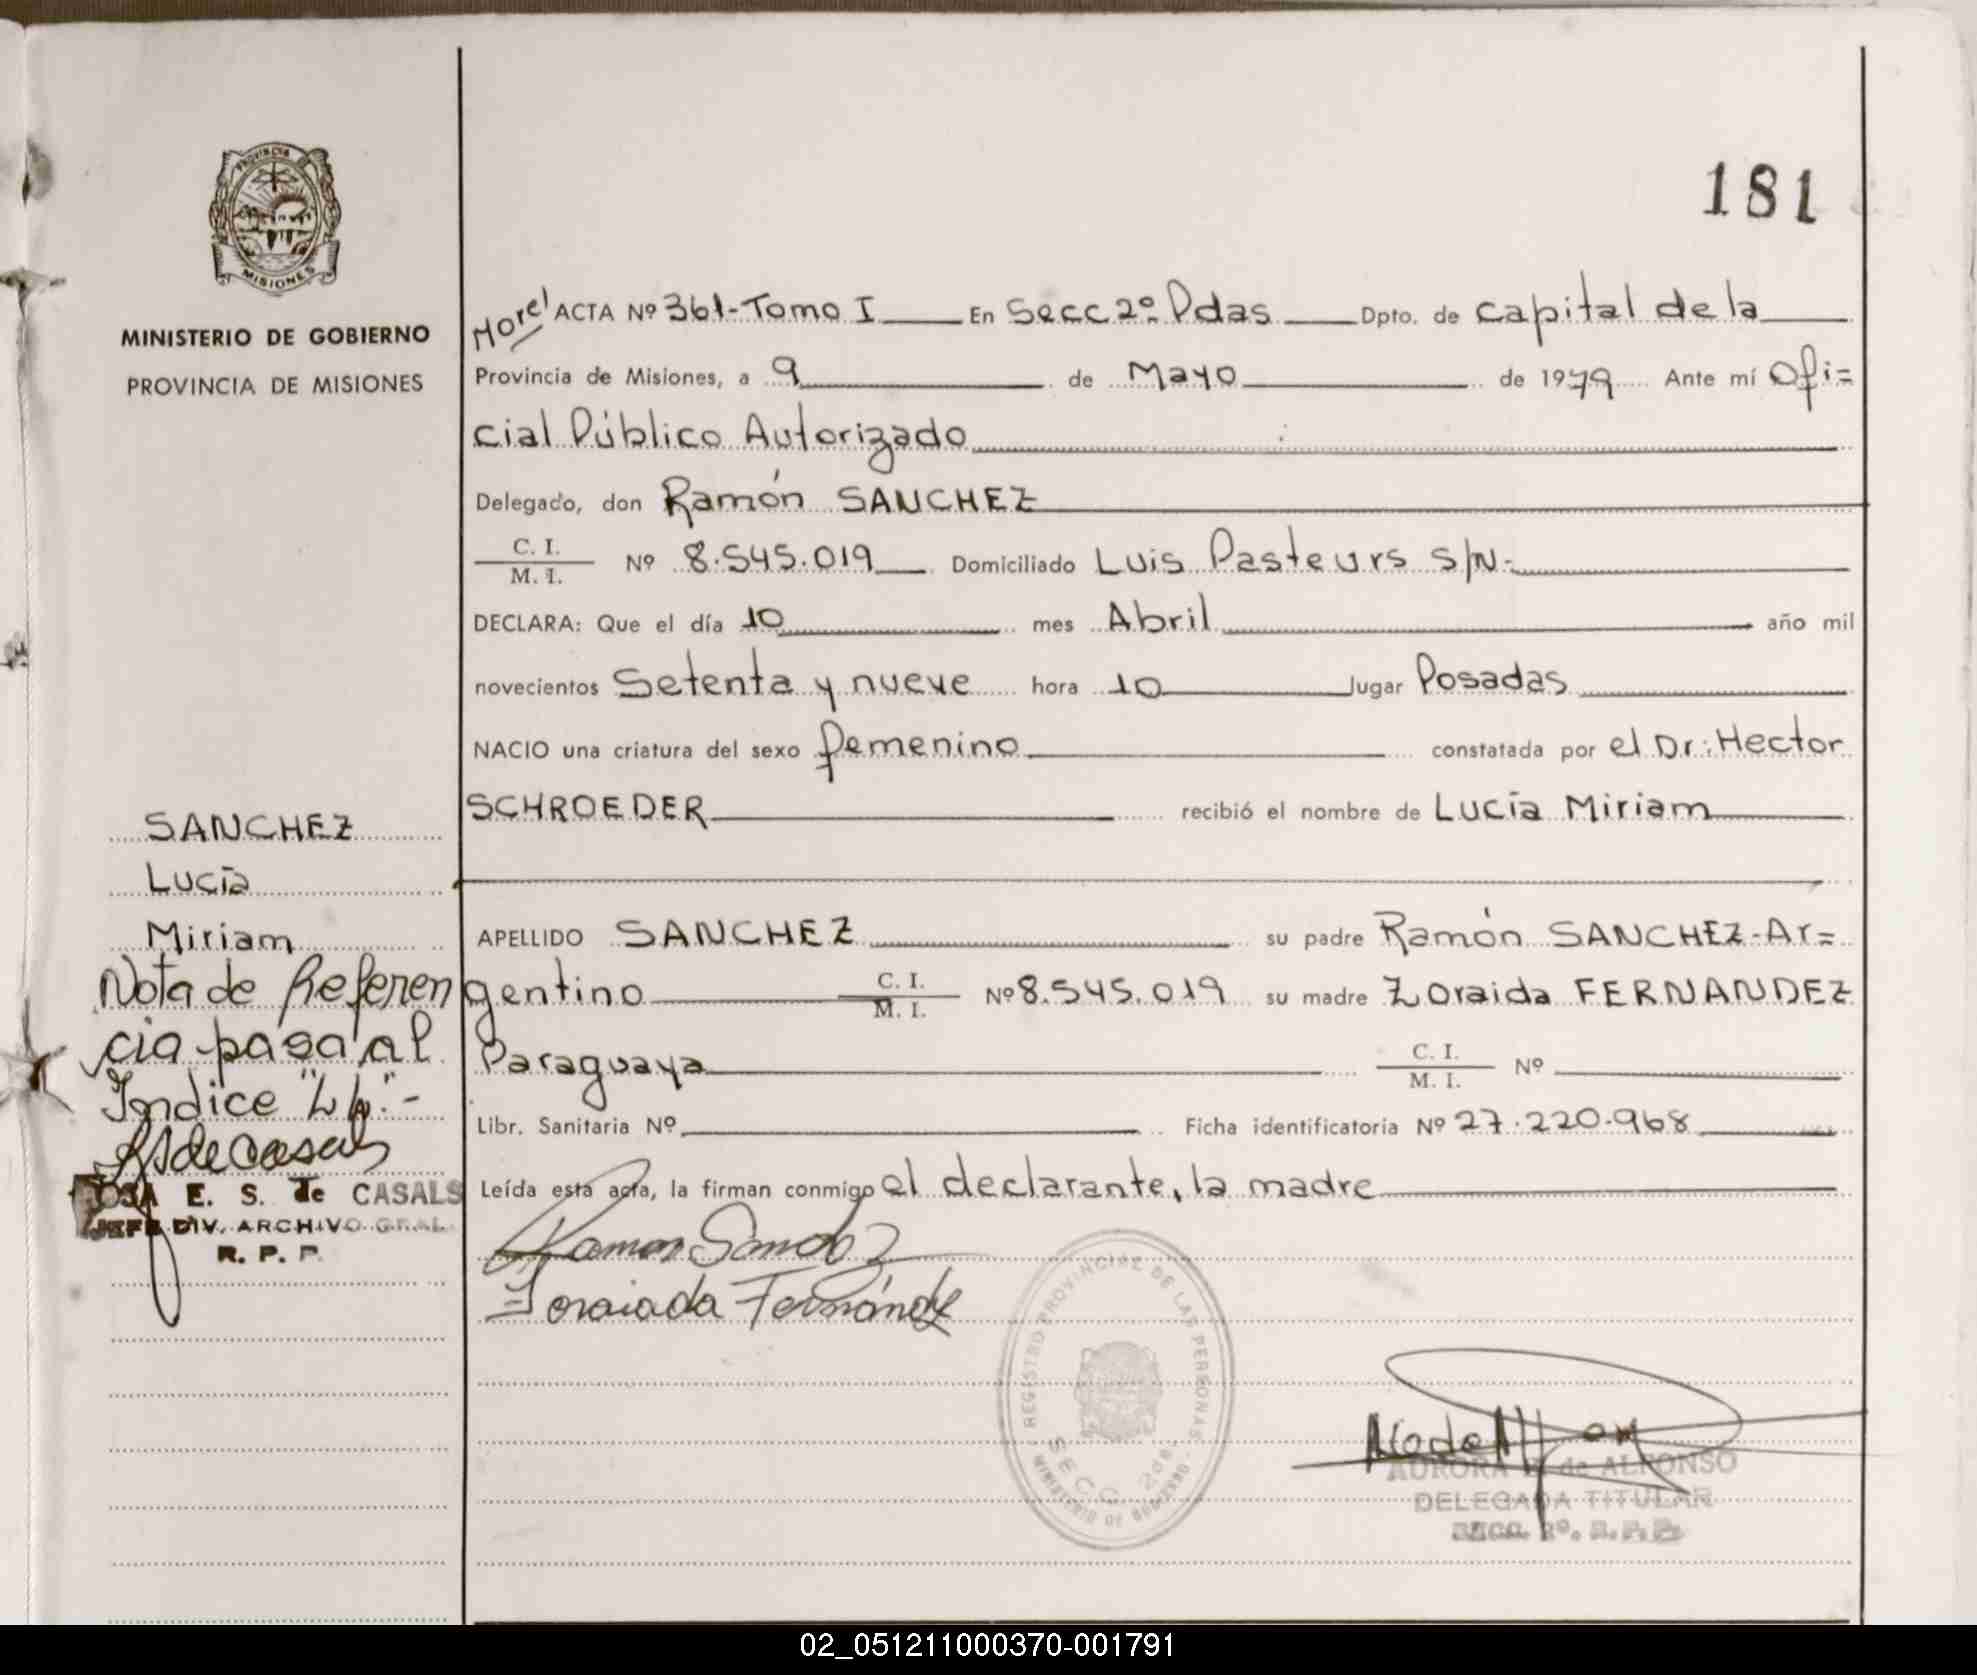 181
PROVINCIA
MISIONES
MINISTERIO DE GOBIERNO
PROVINCIA DE MISIONES
Morel ACTA Nº 361-Tomo I En Secc 2º Pdas Dpto. de Capital de la
Provincia de Misiones, a 9 de Mayo de 1979 Ante mí Ofi=
cial Público Autorizado
Delegado, don Ramón SANCHEZ
C. I.
M. I. Nº 8.545.019 Domiciliado Luis Pasteurs S/N-
DECLARA: Que el día 10 mes Abril año mil
novecientos Setenta y nueve hora 10 lugar Posadas
NACIO una criatura del sexo femenino constatada por el Dr: Hector
SCHROEDER recibió el nombre de Lucía Miriam
APELLIDO SANCHEZ su padre Ramón SANCHEZ-Ar=
gentino C. I.
M. I. Nº 8.545.019 su madre Zoraida FERNANDEZ
Paraguaya C. I.
M. I. Nº
Libr. Sanitaria Nº Ficha identificatoria Nº 27.220.968
Leída esta acta, la firman conmigo el declarante, la madre
Ramon Sanchez
Zoraiada Fernández
REGISTRO PROVINCIAL DE LAS PERSONAS
MINISTERIO DE GOBIERNO
SECC. 2da.
AURORA de ALFONSO
DELEGADA TITULAR
SECC. 2º. R.P.P.
SANCHEZ
Lucía
Miriam
Nota de Referen
cia pasa al
Indice
E. S. de CASALS
JEFE DIV. ARCHIVO GRAL.
R. P. P.
02_051211000370-001791